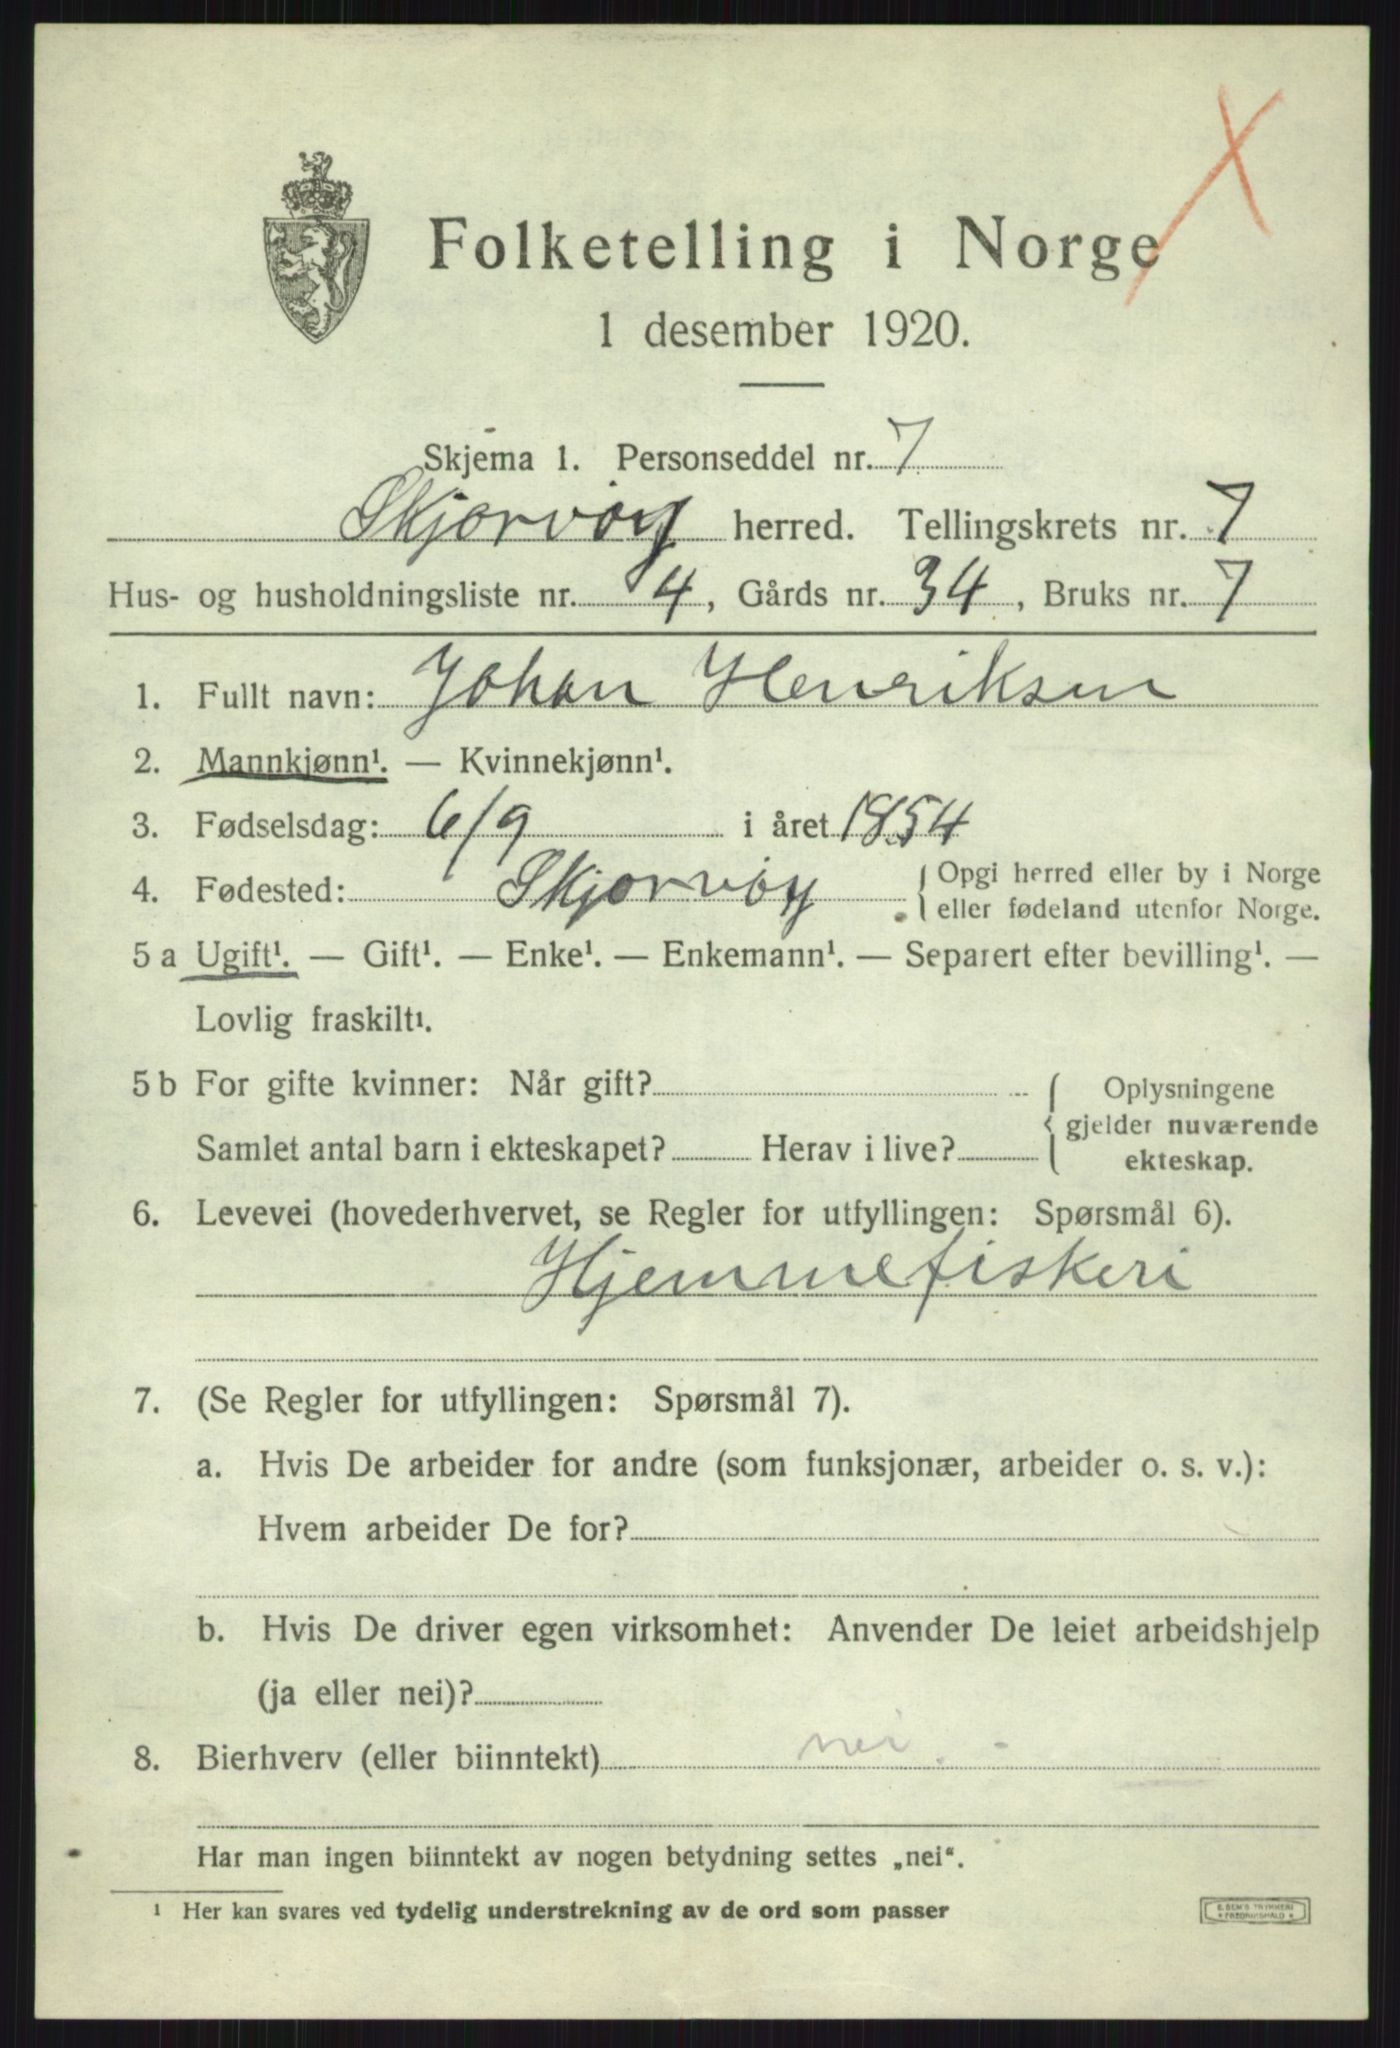 Folketelling i Norge
1 desember 1920.
Skjema 1. Personseddel nr. 7
Skjørvøy herred. Tellingskrets nr. 7
Hus- og husholdningsliste nr. 4, Gårds nr. 34, Bruks nr. 7
1. Fullt navn: Johan Henriksen
2. Mannkjønn¹. — Kvinnekjønn¹.
3. Fødselsdag: 6/9 i året 1854
4. Fødested: Skjørvøy { Opgi herred eller by i Norge
eller fødeland utenfor Norge.
5 a Ugift¹. — Gift¹. — Enke¹. — Enkemann¹. — Separert efter bevilling¹. —
Lovlig fraskilt¹.
5 b For gifte kvinner: Når gift? { Oplysningene
gjelder nuværende
Samlet antal barn i ekteskapet? Herav i live? ekteskap.
6. Levevei (hovederhvervet, se Regler for utfyllingen: Spørsmål 6).
Hjemmefiskeri
7. (Se Regler for utfyllingen: Spørsmål 7).
a. Hvis De arbeider for andre (som funksjonær, arbeider o. s. v.):
Hvem arbeider De for?
b. Hvis De driver egen virksomhet: Anvender De leiet arbeidshjelp
(ja eller nei)?
8. Bierhverv (eller biinntekt) nei. -
Har man ingen biinntekt av nogen betydning settes „nei“.
¹ Her kan svares ved tydelig understrekning av de ord som passer
E. SEM'S TRYKKERI
FREDRIKSHALD